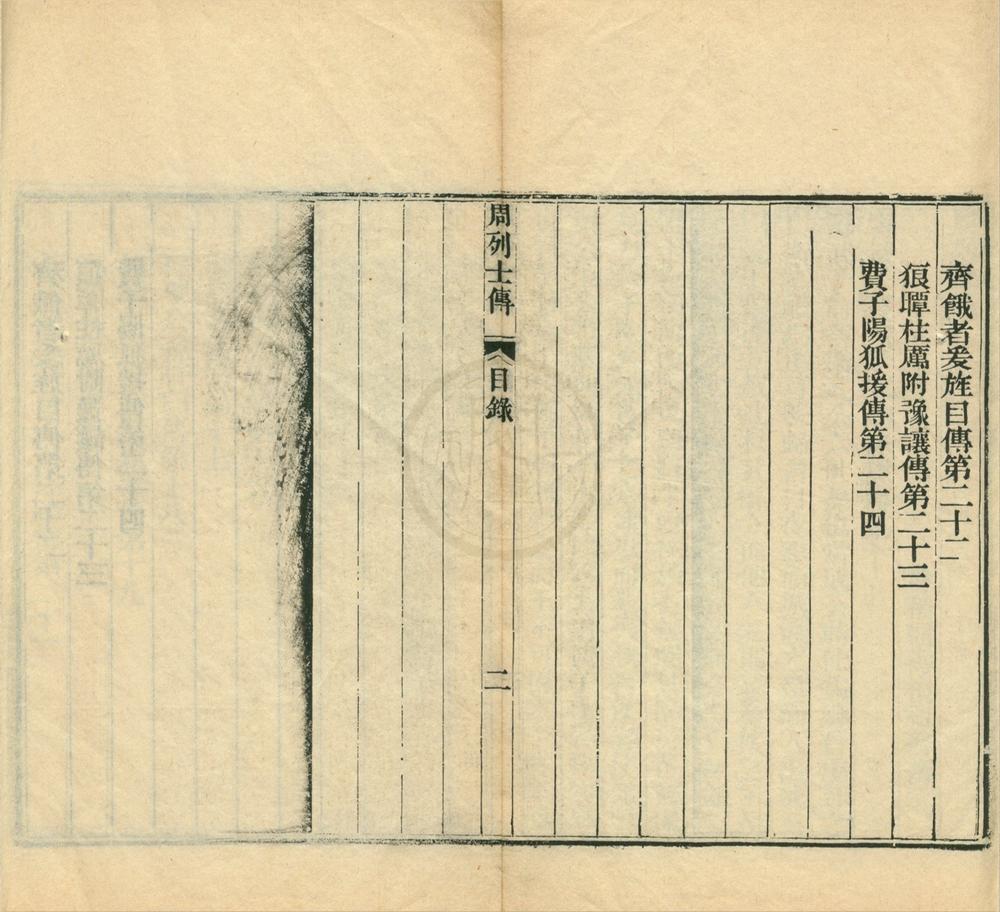 齊餓者爰旌目傳第二十二
狼瞫柱厲附豫讓傳第二十三
費子陽狐援傳第二十四
周列士傳 目錄 二